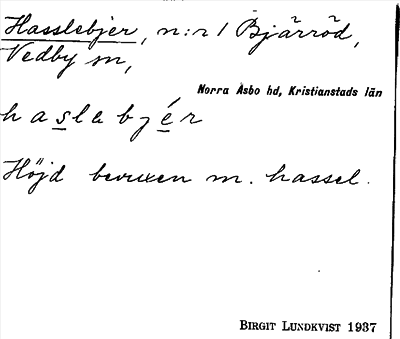 Hasslebjer, n:r 1 Bjärröd,
Vedby sn,
Norra Åsbo hd, Kristianstads län
haslebjér
Höjd bevuxen m. hassel.
BIRGIT LUNDKVIST 1937